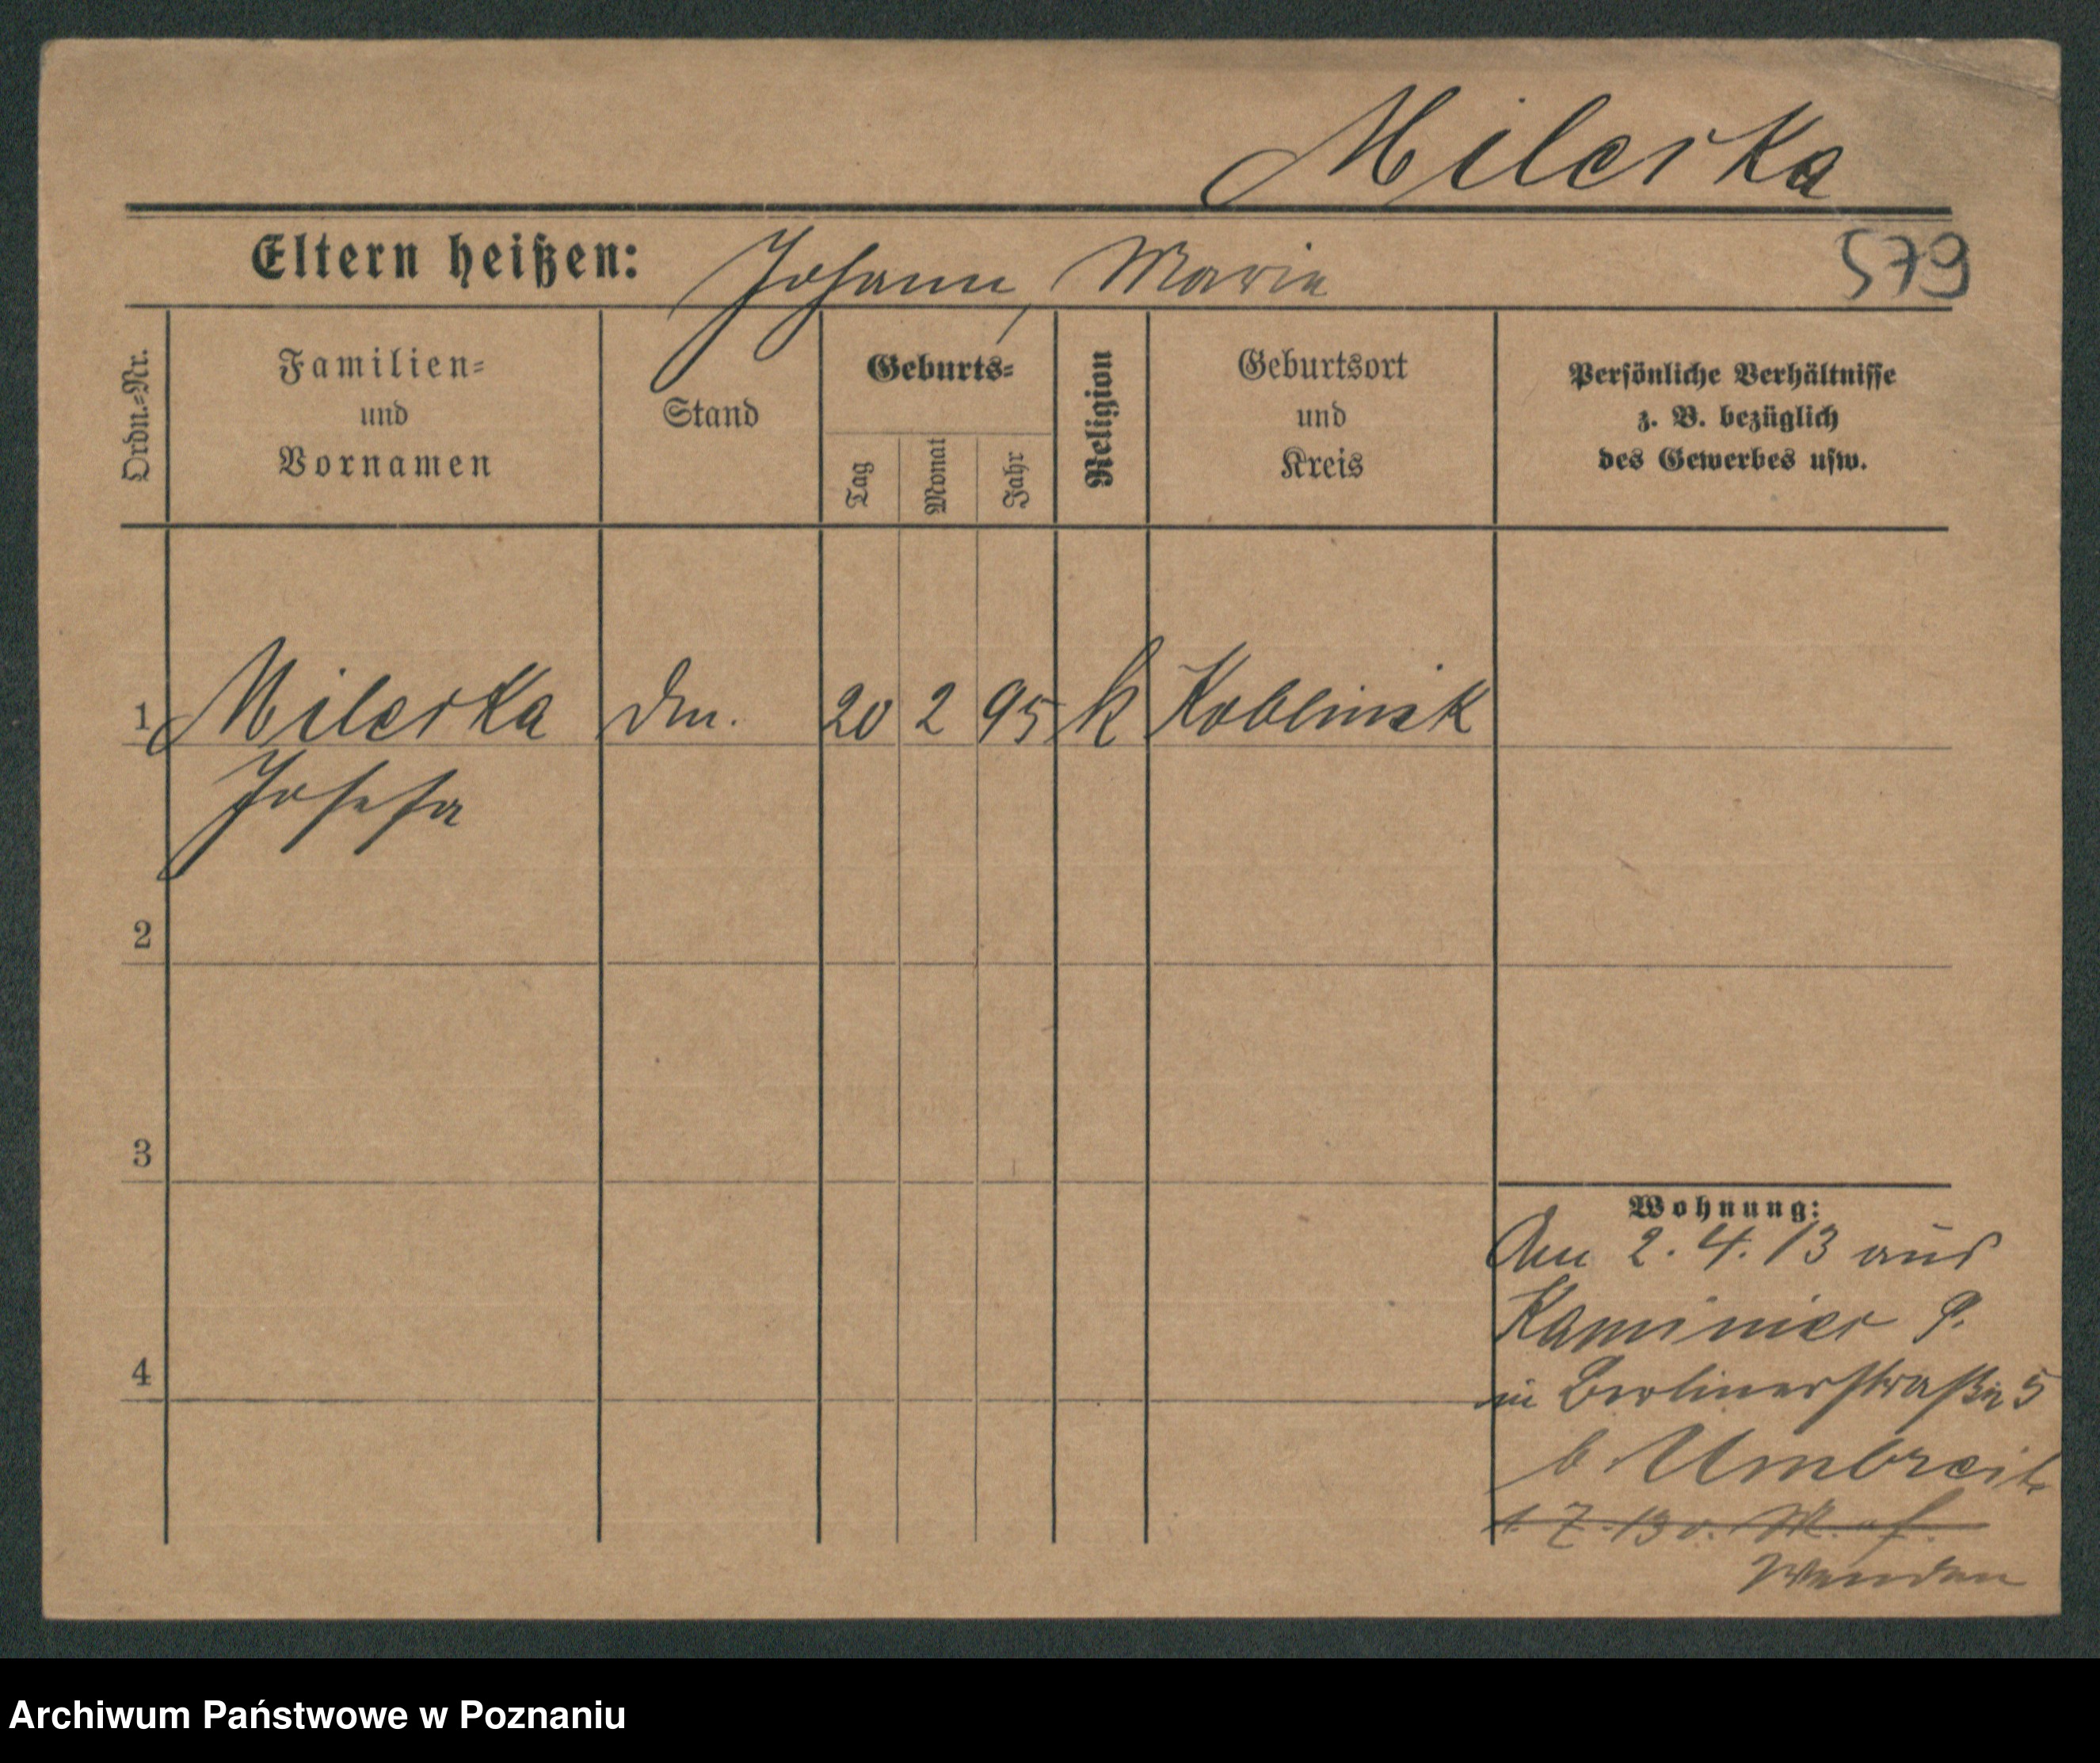 Milerka
Eltern heißen: Johann, Maria
579
Ordn.-Nr.
Familien-
und
Vornamen
Stand
Geburts-
Tag
Monat
Jahr
Religion
Geburtsort
und
Kreis
Persönliche Verhältnisse
z. B. bezüglich
des Gewerbes usw.
1 Milerka 20 2 95 k
Josefa
2
3
4
Wohnung:
Am 2. 4. 13 aus
Kaminiec P.
in Berlinerstraße 5
b. Umbreit
1. 7. 13 v.
Wenden
Archiwum Państwowe w Poznaniu